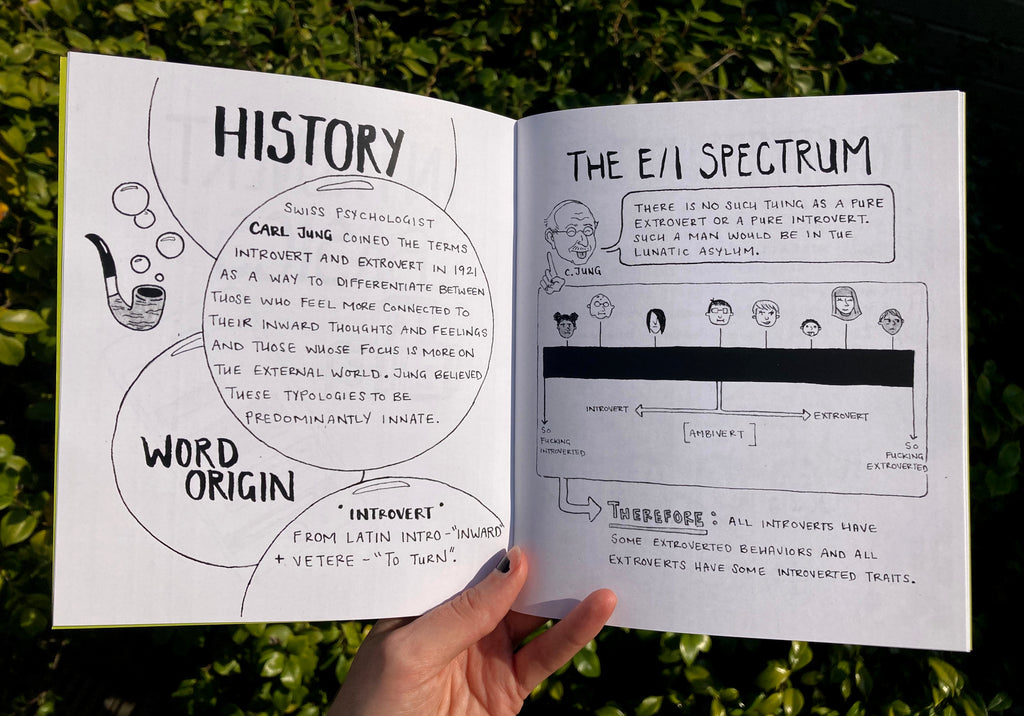 HISTORY
SWISS PSYCHOLOGIST
CARL JUNG COINED THE TERMS
INTROVERT AND EXTROVERT IN 1921
AS A WAY TO DIFFERENTIATE BETWEEN
THOSE WHO FEEL MORE CONNECTED TO
THEIR INWARD THOUGHTS AND FEELINGS
AND THOSE WHOSE FOCUS IS MORE ON
THE EXTERNAL WORLD. JUNG BELIEVED
THESE TYPOLOGIES TO BE
PREDOMINANTLY INNATE.
WORD
ORIGIN
"INTROVERT"
FROM LATIN INTRO-"INWARD"
+ VETERE - "TO TURN".
THE E/I SPECTRUM
THERE IS NO SUCH THING AS A PURE
EXTROVERT OR A PURE INTROVERT.
SUCH A MAN WOULD BE IN THE
LUNATIC ASYLUM.
C. JUNG
INTROVERT
EXTROVERT
[AMBIVERT]
SO
FUCKING
INTROVERTED
SO
FUCKING
EXTROVERTED
THEREFORE: ALL INTROVERTS HAVE
SOME EXTROVERTED BEHAVIORS AND ALL
EXTROVERTS HAVE SOME INTROVERTED TRAITS.